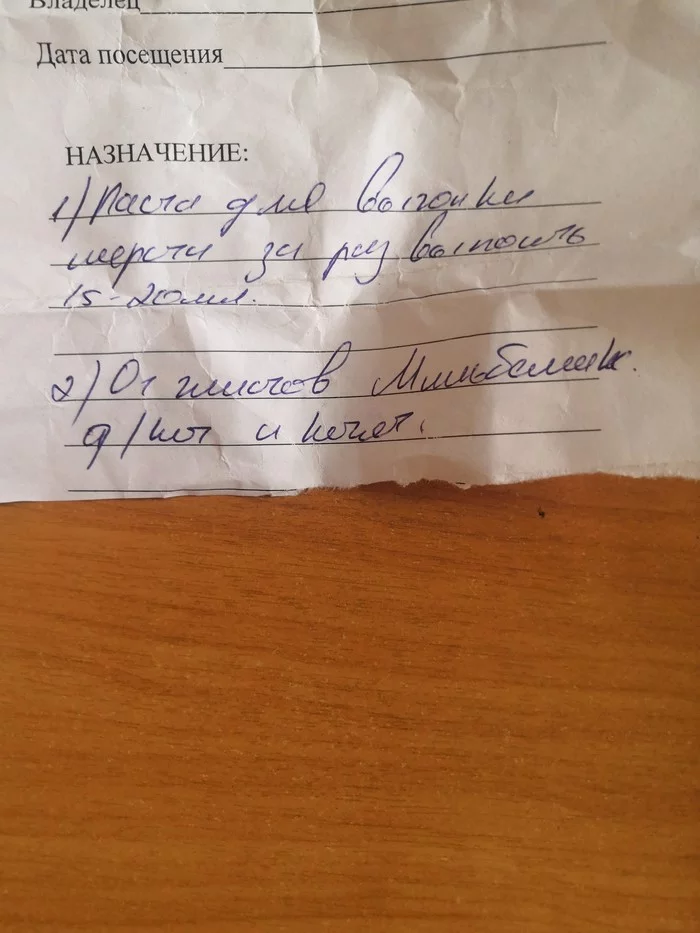 Владелец
Дата посещения
НАЗНАЧЕНИЕ:
1) Паста для выгонки
шерсти за раз выпоить
15-20мл.
2) От глистов Мильбемакс.
д/кот и кошек.